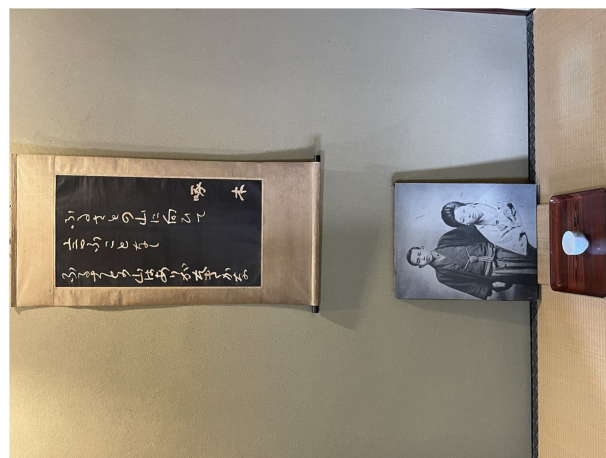 啄木
ふるさとの山に向ひて
言ふことなし
ふるさとの山はありがたきかな